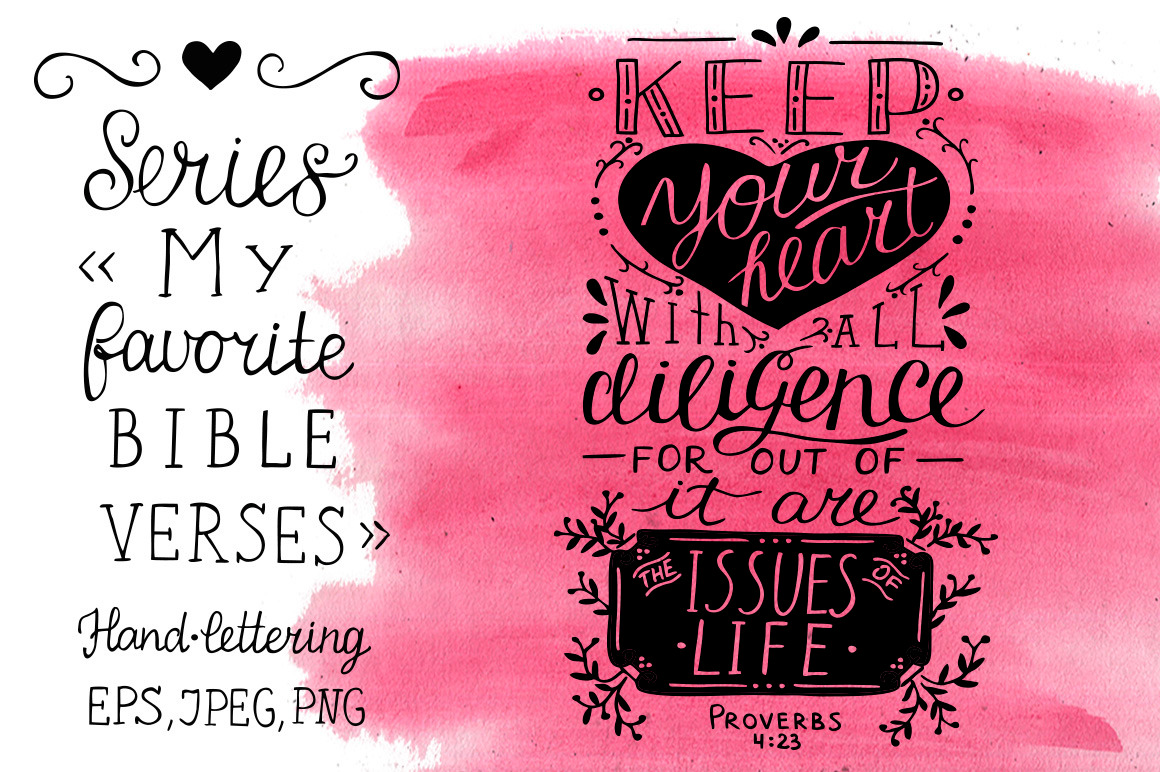 Series
« My
favorite
BIBLE
VERSES »
Hand·lettering
EPS, JPEG, PNG
KEEP
your
heart
With ALL
diligence
— FOR OUT OF —
it are
THE ISSUES OF
· LIFE ·
PROVERBS
4:23